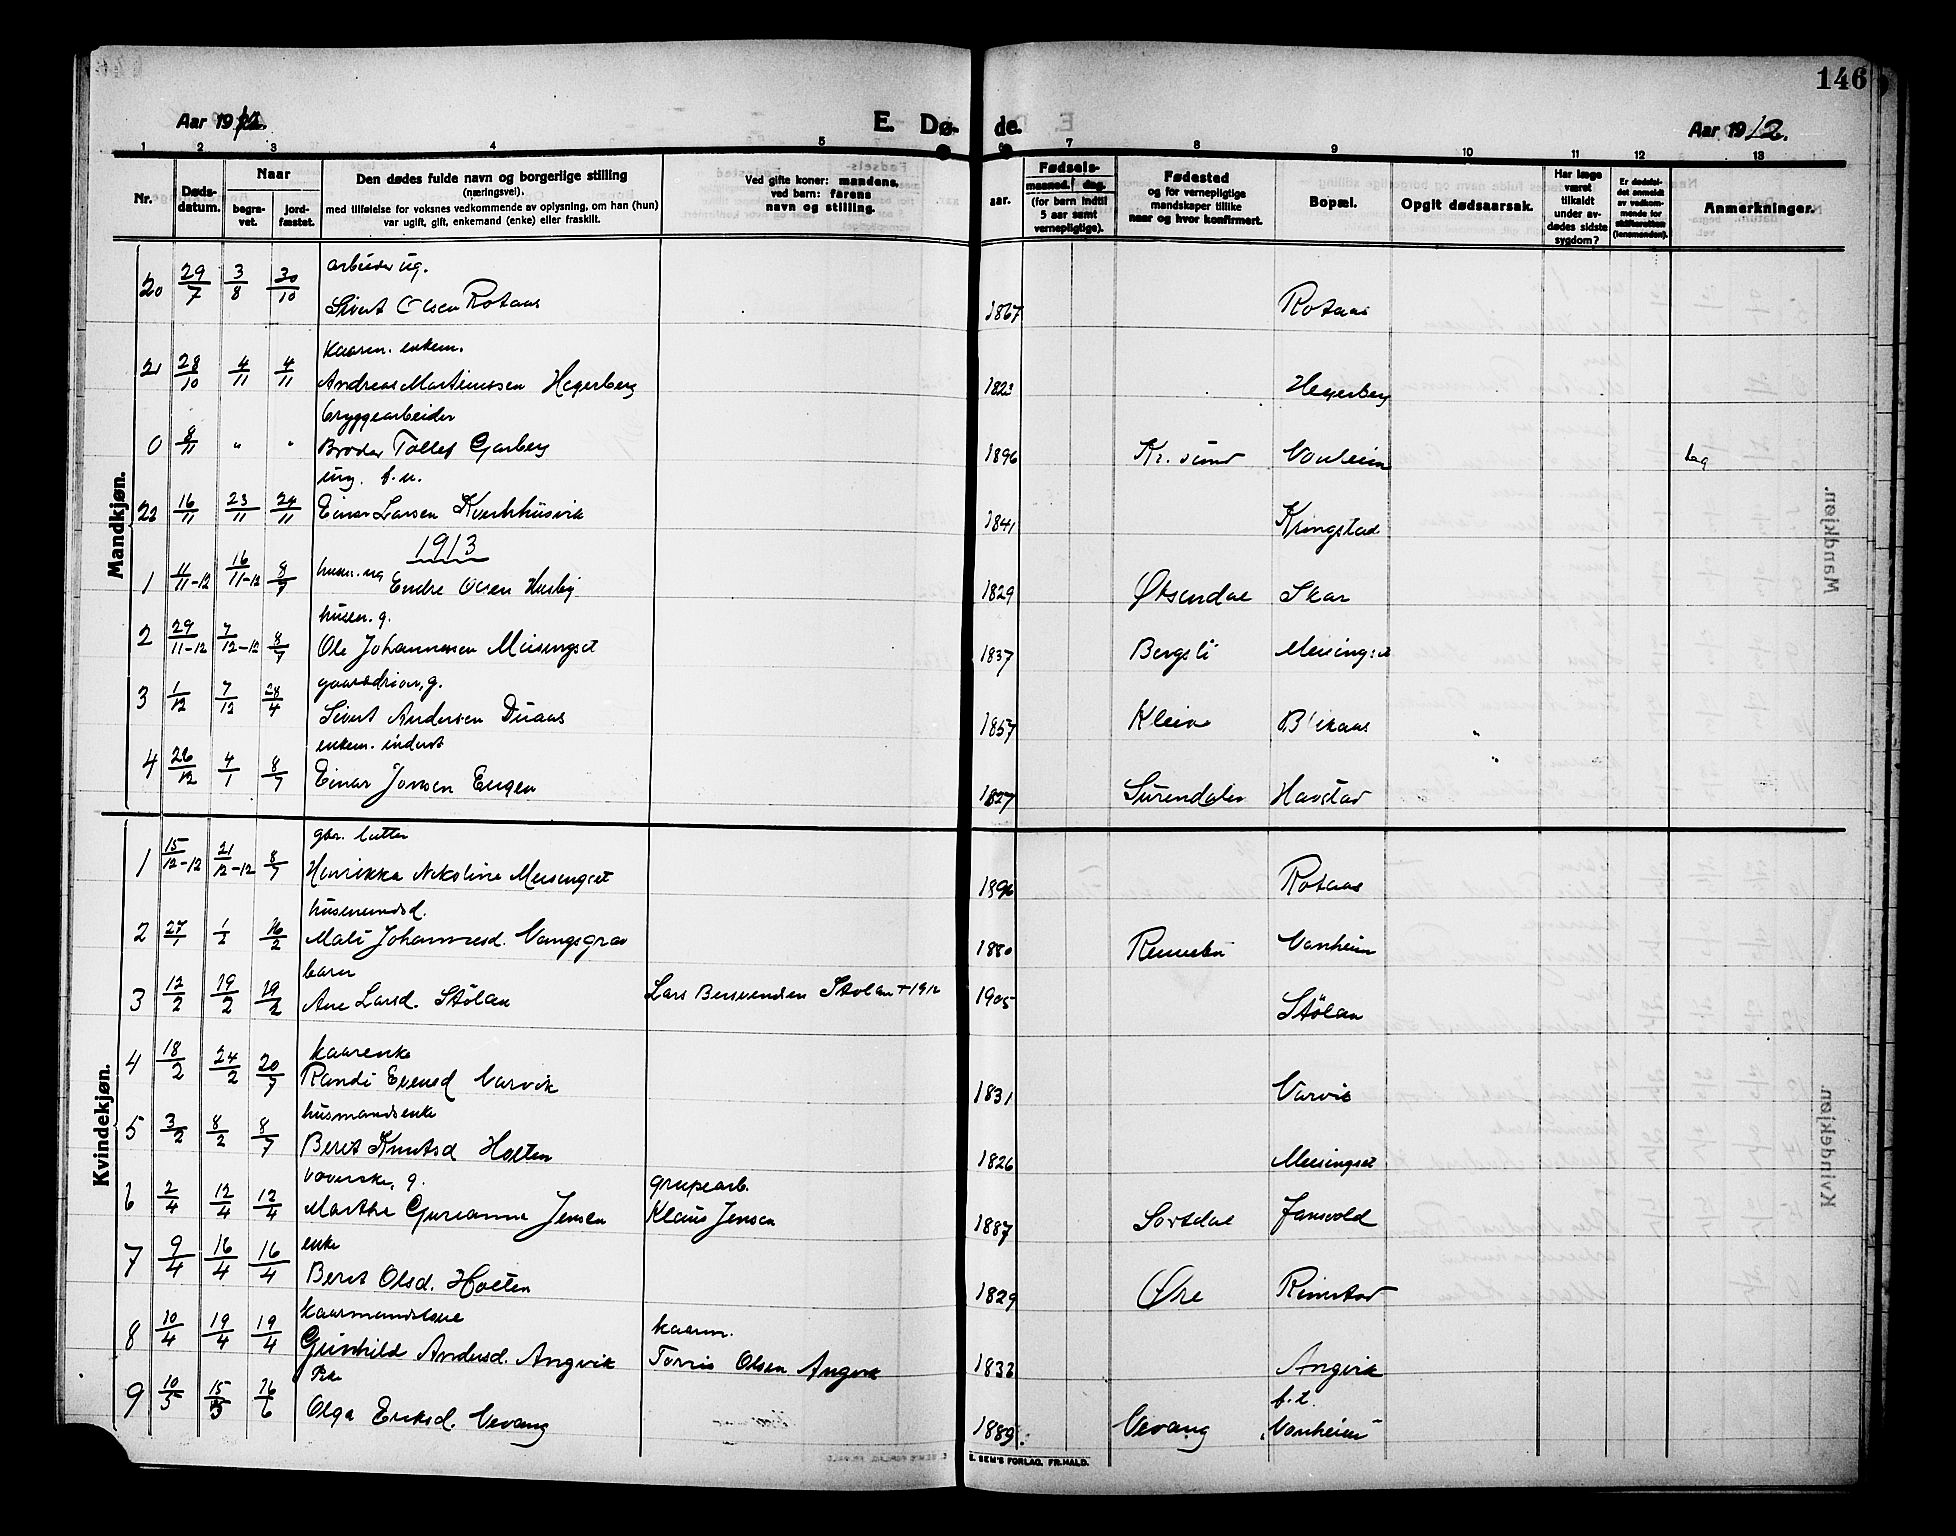 146
Aar 1912. E. Dø- de. Aar 1912.
1 2 3 4 5 6 7 8 9 10 11 12 13
Nr. Døds-datum. Naar begra-vet. jord-fæstet. Den dødes fulde navn og borgerlige stilling (næringsvei). med tilføielse for voksnes vedkommende av oplysning, om han (hun) var ugift, gift, enkemand (enke) eller fraskilt. Ved gifte koner: mandens, ved barn: farens navn og stilling. aar. Fødsels- maaned. dag. (for børn indtil 5 aar samt vernepligtige). Fødested og for vernepligtige mandskaper tillike naar og hvor konfirmert. Bopæl. Opgit dødsaarsak. Har læge været tilkaldt under av-dødes sidste sygdom? Er dødsfal-det anmeldt av vedkom-mende for skifteretten (lensmanden). Anmerkninger.
Mandkjøn.
arbeider ug.
20 29/7 3/8 30/10 Sivert Olsen Rotaas 1867 Rotaas
kaarm. enkem.
21 28/10 4/11 4/11 Andreas Martinussen Hegerberg 1823 Hegerberg
bryggearbeider
0 8/11 " " Broder Tollef Garberg 1896 Kr. sund Vonheim
ung. f.u.
22 16/11 23/11 24/11 Einar Larsen 1841 Kringstad
1913
1 11/11-12 16/11-12 8/7 husm. ug Endre Olsen Husby 1829 Øksendal Skar
husm. g.
2 29/11-12 7/12-12 8/7 Ole Johannessen Meisingset 1837 Bergsli Meisingset
g.
3 1/12 7/12 28/4 Sivert Andersen Duaas 1857 Kleive
enkem. inderst
4 26/12 4/1 8/7 Einar Jonsen Engen 1827 Surendalen Havstad
Kvindekjøn.
1 15/12-12 21/12-12 8/7 Henrikka Nikoline Meisingset 1896 Rotaas
2 27/1 1/2 16/2 Mali Johannesd. Vangsgrav 1880 Rennebu Vonheim
barn
3 12/2 19/2 19/2 Ane Larsd. Stølan Lars Bersvendsen Stølan +1912 1905 Stølan
kaarenke
4 18/2 24/2 20/7 Randi Evensd Varvik 1831 Varvik
husmandsenke
5 3/2 8/2 8/7 Berit Knutsd Holten 1826 Meisingset
g. grupearb.
6 2/4 12/4 12/4 Marthe Gurianna Jensen Klaus Jensen 1887 Sortdal
enke
7 9/4 16/4 16/4 Berit Olsd. Holten 1829 Øre Rimstad
kaarmandskone kaarm.
8 10/4 19/4 19/4 Gunhild Andersd. Angvik Torris Olsen Angvik 1833 Angvik
Pike f.t.
9 10/5 15/5 16/6 Olga Eriksd. Vevang 1889 Vevang Vonheim
E. SEM'S FORLAG, FR.HALD.
Mandkjøn.
Kvindekjøn.